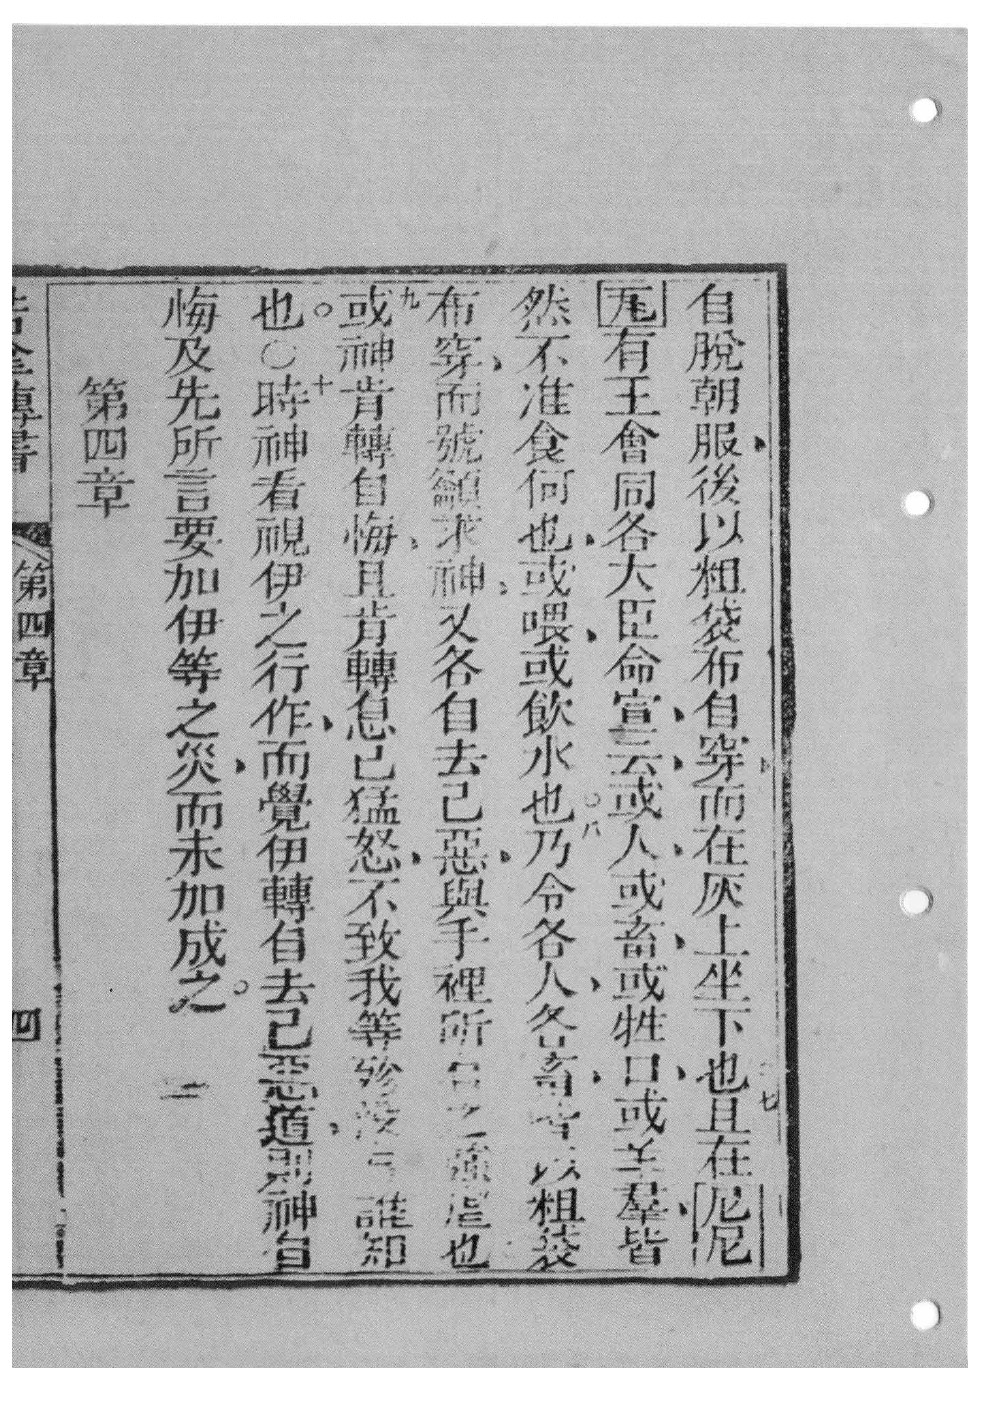 自脫朝服後以粗袋布自穿而在灰上坐下也七且在尼尼
瓦有王會同各大臣命宣云或人或畜或牲口或羊羣皆
然不准食何也或喂或飲水也○八乃令各人各畜皆以粗袋
布穿而號籲求神又各自去己惡與手裡所之強虐也
九或神肯轉自悔且肯轉息己猛怒不致我等殄誰知
也○十時神看視伊之行作而覺伊轉自去己惡道則神自
悔及先所言要加伊等之災而未加成之○
第四章
第四章
四